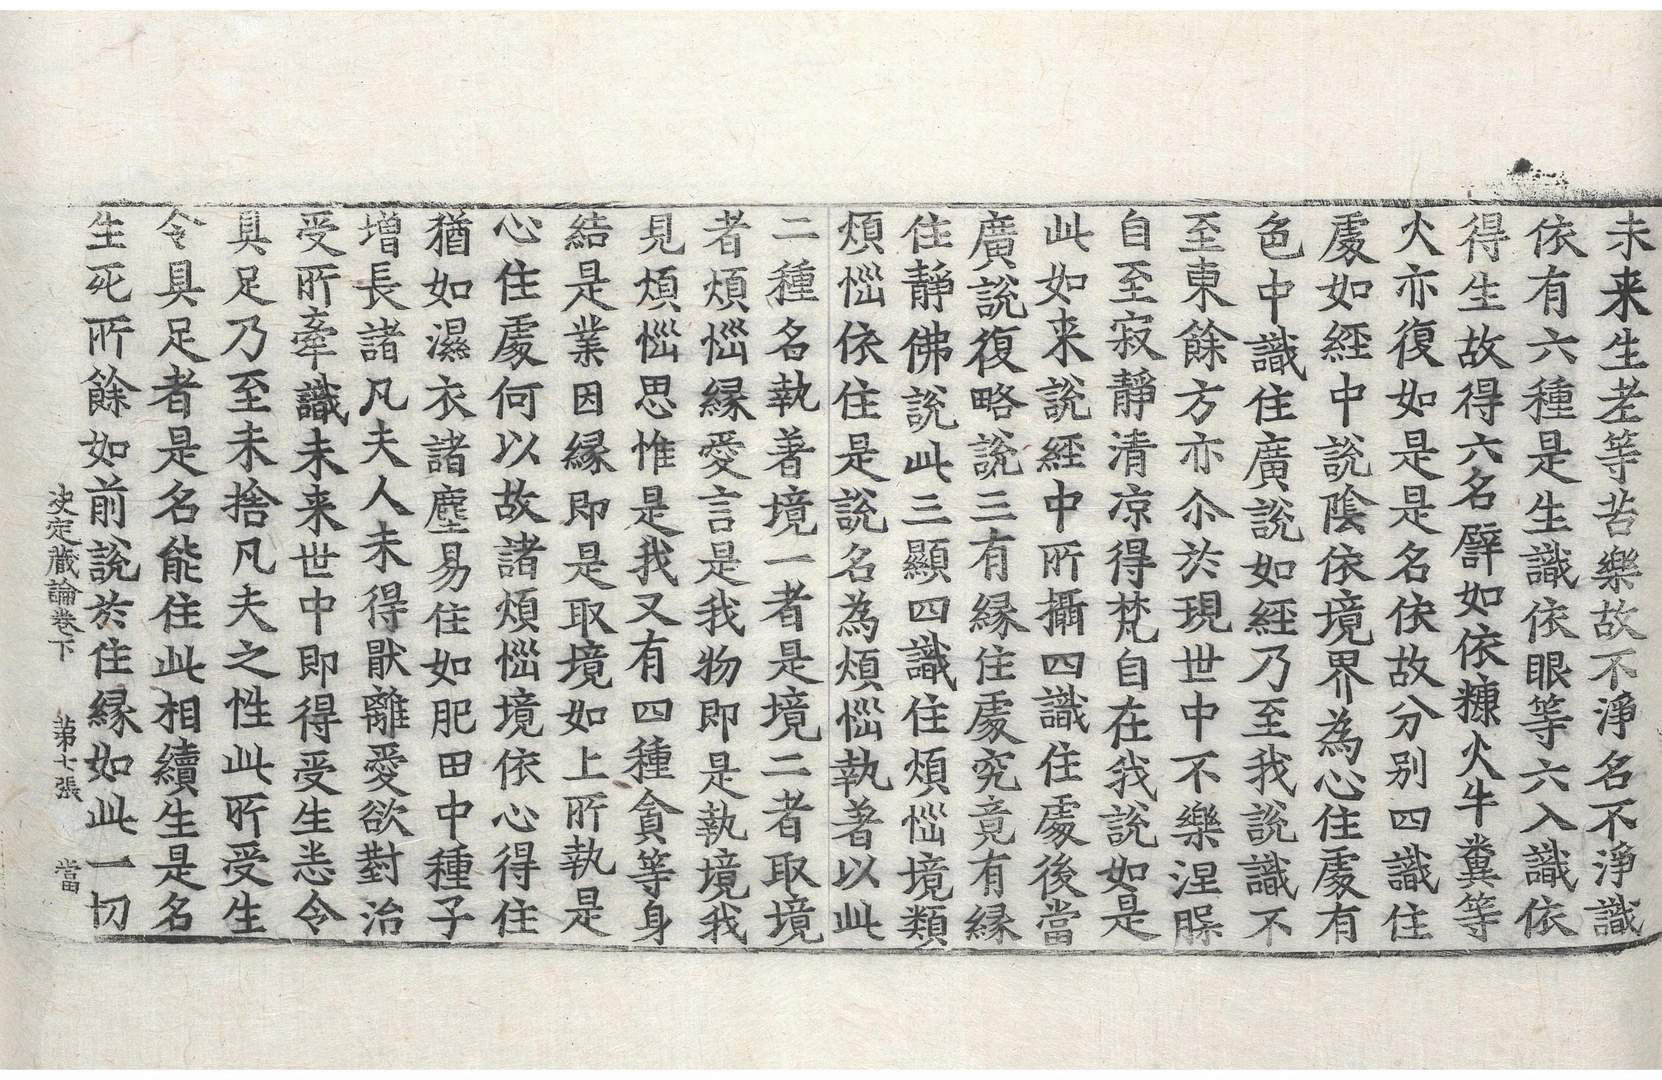 未来生老等苦樂故不淨名不淨識
依有六種是生識依眼等六入識依
得生故得六名譬如依糠火牛糞等
火亦復如是是名依故分別四識住
處如經中說陰依境界為心住處有
色中識住廣說如經乃至我說識不
至東餘方亦尒於現世中不樂涅槃
自至寂靜清凉得梵自在我說如是
此如来說經中所攝四識住處後當
廣說復略說三有緣住處究竟有緣
住靜佛說此三顯四識住煩惱境類
煩惱依住是說名為煩惱執著以此
二種名執著境一者是境二者取境
者煩惱緣愛言是我物即是執境我
見煩惱思惟是我又有四種貪等身
結是業因緣即是取境如上所執是
心住處何以故諸煩惱境依心得住
猶如濕衣諸塵易住如肥田中種子
增長諸凡夫人未得猒離愛欲對治
受所牽識未来世中即得受生恙令
具足乃至未捨凡夫之性此所受生
令具足者是名能住此相續生是名
生死所餘如前說於住緣如此一切
决定藏論卷下 苐七張 當